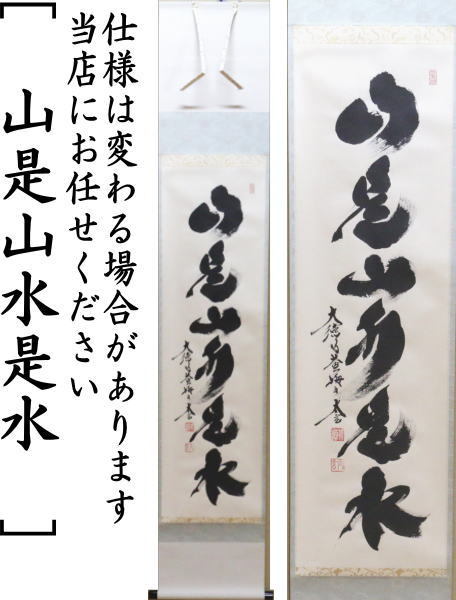 仕様は変わる場合があります
当店にお任せください
［山是山水是水］
山是山水是水
山是山水是水